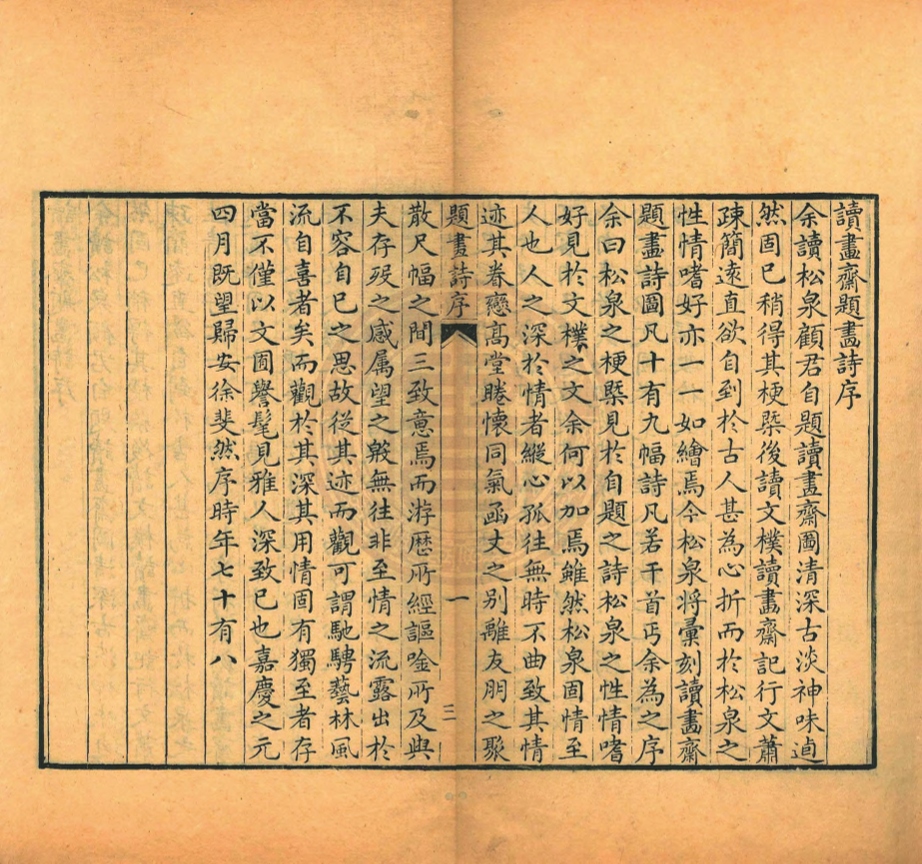 讀畫齋題畫詩序
余讀松泉顧君自題讀畫齋圖清深古淡神味逌
然固已稍得其梗槩後讀文樸讀畫齋記行文蕭
疎簡遠直欲自到於古人甚為心折而於松泉之
性情嗜好亦一一如繪焉今松泉將彙刻讀畫齋
題畫詩圖凡十有九幅詩凡若干首丐余為之序
余曰松泉之梗槩見於自題之詩松泉之性情嗜
好見於文樸之文余何以加焉雖然松泉固情至
人也人之深於情者縱心孤往無時不曲致其情
迹其眷戀高堂睠懷同氣函丈之別離友朋之聚
題畫詩序 一 三
散尺幅之間三致意焉而游歷所經謳唫所及與
夫存歿之感属望之殷無往非至情之流露出於
不容自已之思故從其迹而觀可謂馳騁藝林風
流自喜者矣而觀於其深其用情固有獨至者存
當不僅以文囿譽髦見雅人深致已也嘉慶之元
四月既望歸安徐斐然序時年七十有八